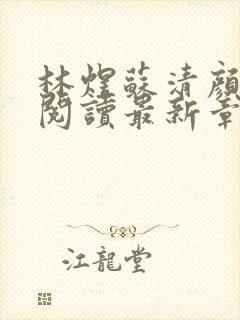 林煜蘇清顏
閱讀最新章
江龍堂